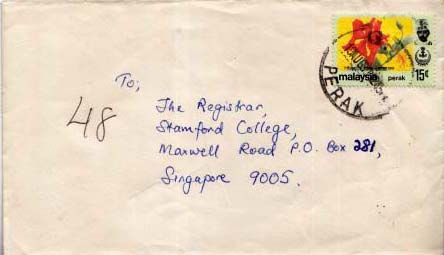 malaysia perak 15¢
PERAK
To;
48
The Registrar,
Stamford College,
Maxwell Road P.O. Box 281,
Singapore 9005.